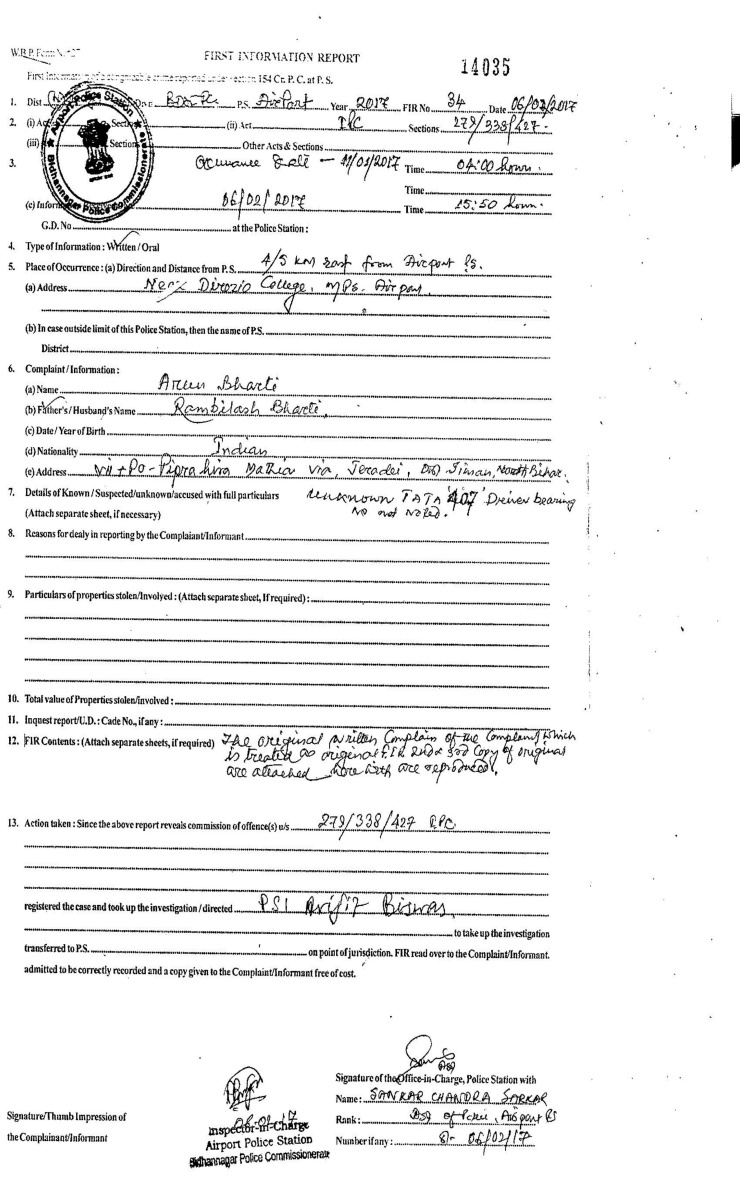 W.B.P. Form N. 27
FIRST INFORMATION REPORT
14035
First Information of a cognizable crime reported under section 154 Cr. P. C. at P. S.
1. Dist P.S. Airport Year 2017 FIR No 34 Date 06/02/2017
2. (i) Act Section (ii) Act IPC Sections 279/338/427.
(iii) Section Other Acts & Sections
3. Occurance Date - 11/01/2017 Time 04:00 hours.
Time
(c) Inform 06/02/2017 Time 15:50 hours.
Airport Police Station
Bidhannagar Police Commissionerate
G.D. No at the Police Station :
4. Type of Information : Written / Oral
5. Place of Occurrence : (a) Direction and Distance from P.S. 4/5 KM east from Airport P.S.
(a) Address Derozio College, Airport
(b) In case outside limit of this Police Station, then the name of P.S.
District
6. Complaint / Information :
(a) Name Arun Bharti
(b) Father's / Husband's Name Rambilash Bharti,
(c) Date / Year of Birth
(d) Nationality Indian
(e) Address Vill + Po - Piprahira Mathia via, Jeradei, Bihar.
7. Details of Known / Suspected/unknown/accused with full particulars unknown TATA '407' Driver bearing
(Attach separate sheet, if necessary) No not Noted.
8. Reasons for dealy in reporting by the Complaiant/Informant
9. Particulars of properties stolen/Involved : (Attach separate sheet, If required) :
10. Total value of Properties stolen/involved :
11. Inquest report/U.D. : Cade No., if any :
12. FIR Contents : (Attach separate sheets, if required) The original written Complain of the Complaint which
is treated as original F.I.R 2nd & 3rd Copy of original
are attached here with are reproduced.
13. Action taken : Since the above report reveals commission of offence(s) u/s 279/338/427 IPC
registered the case and took up the investigation / directed PSI Arijit Biswas,
to take up the investigation
transferred to P.S. on point of jurisdiction. FIR read over to the Complaint/Informant.
admitted to be correctly recorded and a copy given to the Complaint/Informant free of cost.
Signature of the Office-in-Charge, Police Station with
Name : SANKAR CHANDRA SARKAR
Signature/Thumb Impression of
the Complainant/Informant
Inspector-in-Charge
Airport Police Station
Bidhannagar Police Commissionerate
Rank : of Police, Airport PS
Number if any : 06/02/17